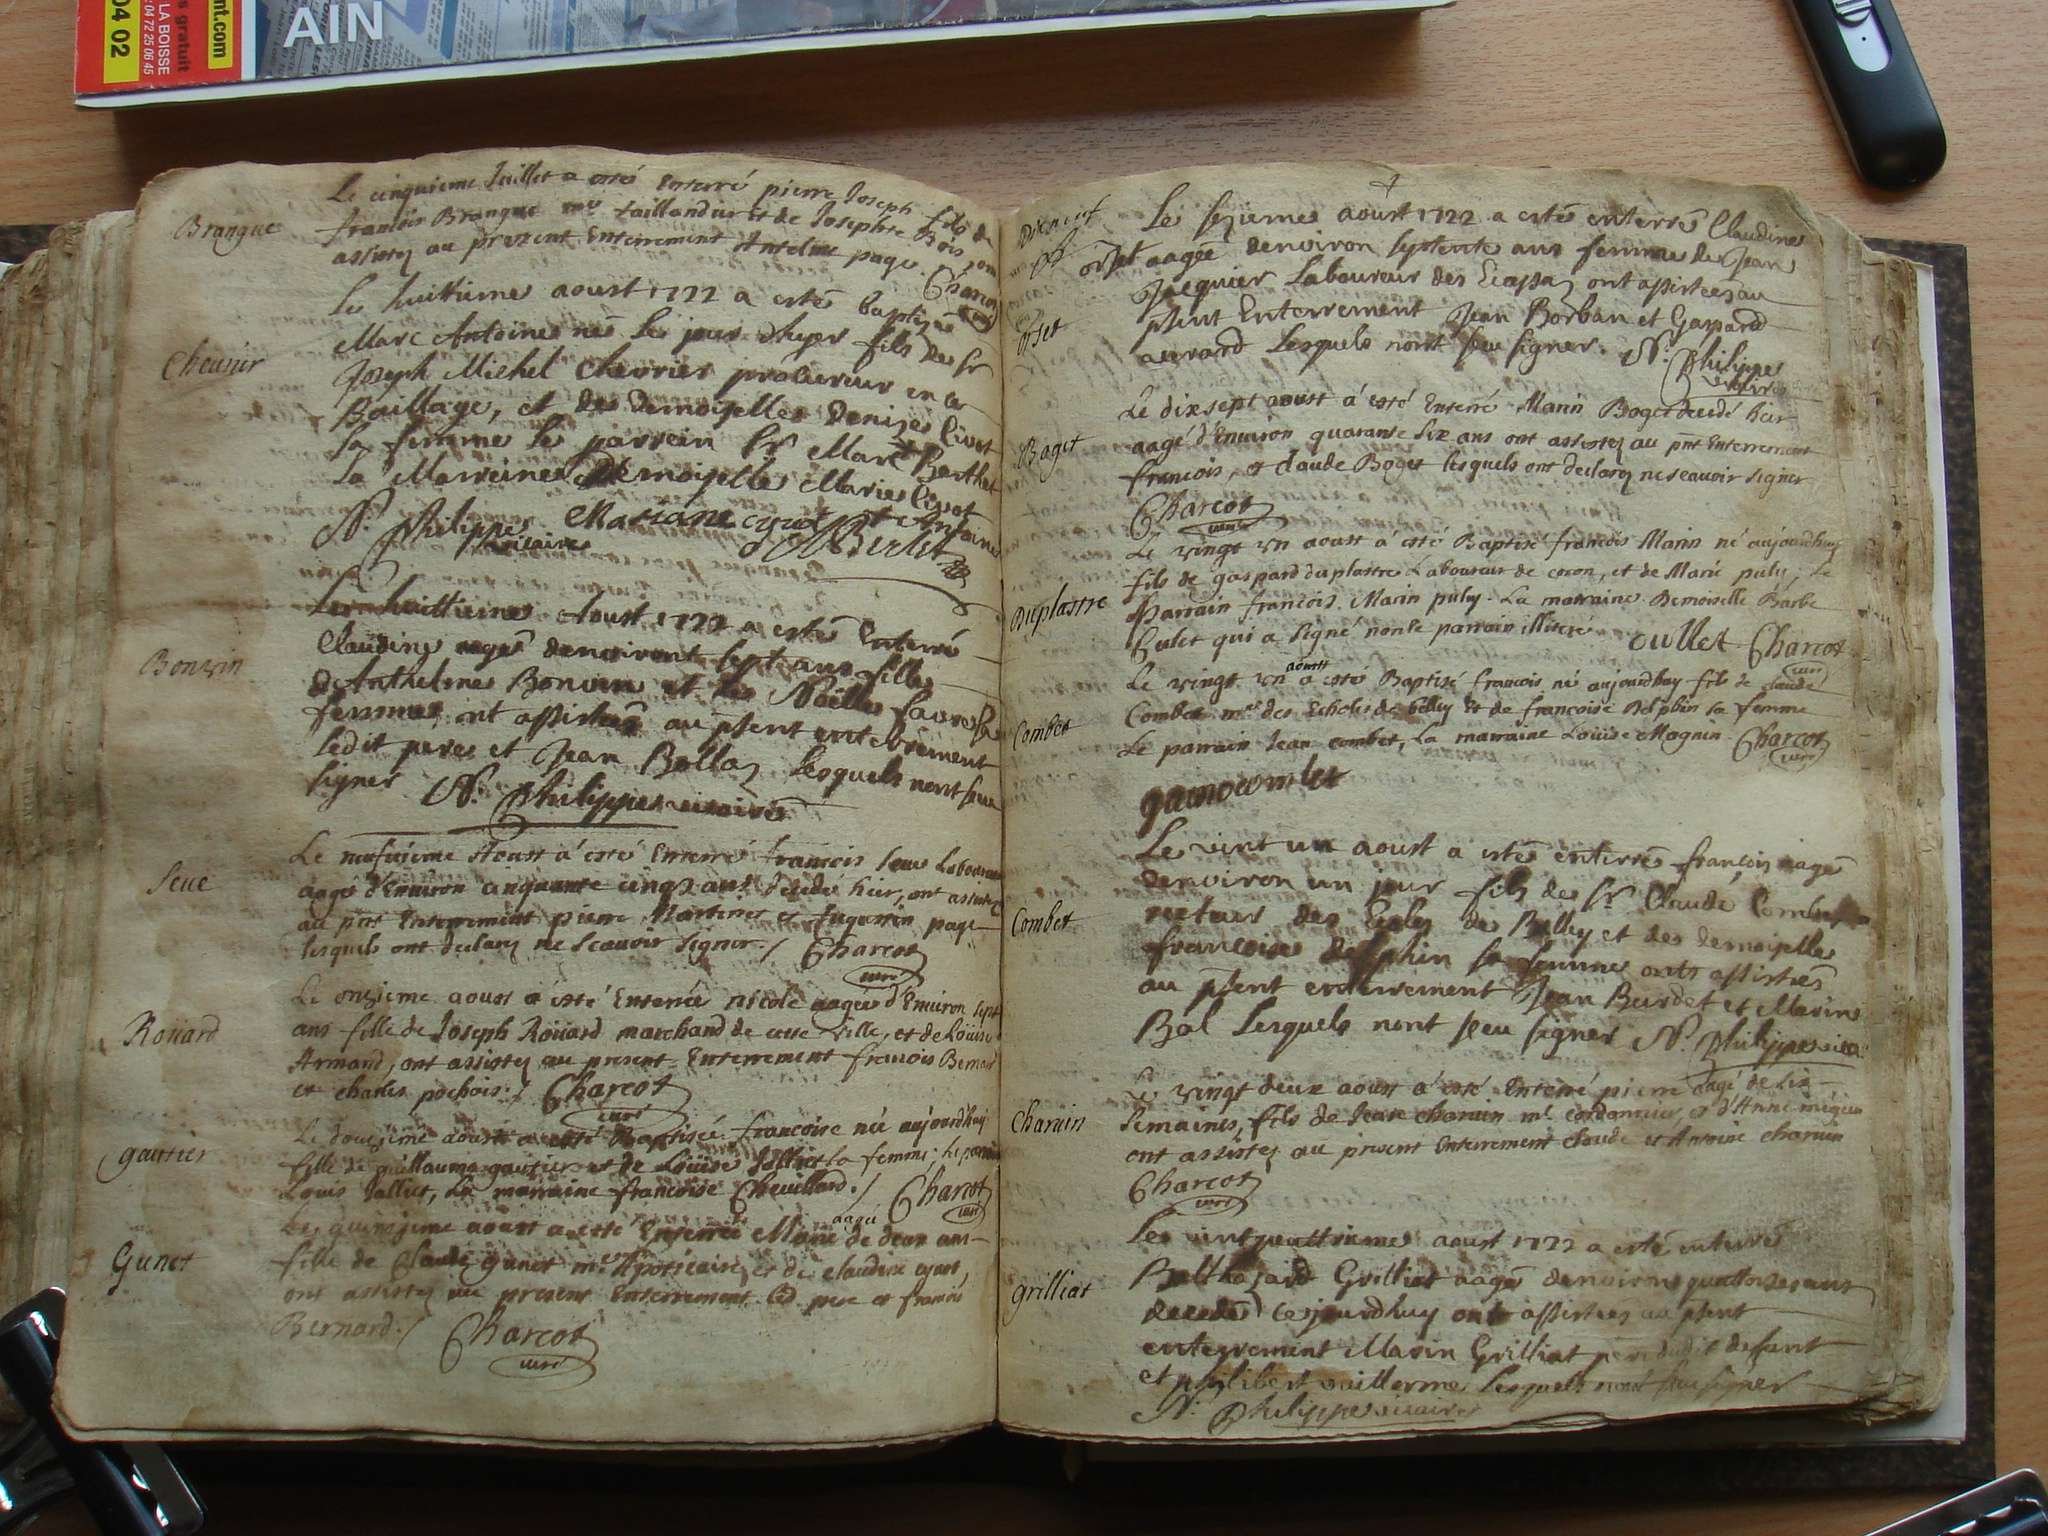 nt.com
s gratuit
LA BOISSE
04 72 25 06 45
04 02
AIN
Brangue
Le cinquieme Juillet a esté Enterré pierre Joseph fils de
francois Brangue mre taillandier et de Josephte Bois, ont
assistez au present Enterrement Antelme page Charcot
curé
Chevrier
Le huittieme aoust 1722 a esté baptizé
Marc Antoine né le jour d'hyer fils de Sr
Joseph Michel Chevrier procureur en ce
Baillage, et de demoiselle Denize Civot
sa femme le parrein Sr Marc Berthet
la Marreine demoiselle Marie Civot
N. Philippe vicaire
Bonvin
Le huittieme Aoust 1722 a esté Enterré
Claudine agée denviront sept ans fille
d'Anthelme Bonvin et de Noëlle favre sa
femme, ont assistéz au psent enterrement
ledit pere et Jean Ballaz lesquels nont seu
signer N. Philippe vicaire
Seve
Le neufvieme Aoust a esté Enterré francois Seve Laboureur
aagé d'Environ cinquante cinq ans decedé hier, ont assistez
au pnt Enterrement pierre Martine et Augustin page
lesquels ont declarez ne Scavoir signer./ Charcot
curé
Roüard
Le onzieme aoust a esté Enterrée nicole aagée d'Environ sept
ans fille de Joseph Roüard marchand de cette Ville, et de Loüise
Armand, ont assistez au present Enterrement francois Bernard
et charles pochois./ Charcot
curé
gautier
Le douzieme aoust a esté Baptisée francoise née aujourdhuy
fille de guillaume gautier et de Loüise Jalliet sa femme; Le parrain
Louis Jalliet, La marraine francoise Chevillard./ Charcot
curé
Gunet
Le quinzieme aoust a esté Enterrée Marie aagée de deux ans
fille de Claude Gunet mre Apoticaire, et de claudine cyvot,
ont assistez au present Enterrement led. pere et francois
Bernard./ Charcot
curé
orset
Le sezieme aoust 1722 a esté enterré Claudine
orset aagée denviron septente ans femme de Jean
Jacquier Laboureur des Ecassaz ont assistées au
psent Enterrement Jean Borban et Gaspard
aurand Lesquels nont seu signer. N. Philippe
vicaire
Boget
Le dixsept aoust a esté Enterré Marin Boget decedé hier
aagé d'Environ quarante six ans ont assistez au pnt Enterrement
francois, et claude Boget lesquels ont declarez ne scavoir signer
Charcot
curé
Duplastre
Le vingt un aoust a esté Baptisé francois Marin né aujourdhuy
fils de gaspard duplastre Laboureur de coron, et de Marie puly, Le
parrain francois Marin puly. La marraine Demoiselle Barbe
Culet qui a signé non le parrain illiteré Cullet Charcot
curé
Combet
Le vingt un aoust a esté Baptisé francois né aujourdhuy fils de claude
Combet mre des Echoles de belley Et de francoise Delphin sa femme
Le parrain Jean combet, La marraine Loüise Magnin Charcot
curé
Combet
Le vint un aoust a esté enterré françois aagé
denviron un jour fils de Sr Claude Combet
recteur des Ecoles de Belley et de demoiselle
francoise delphin sa femme ont assistés
au psent enterrement Jean Burdet et Marin
Bal Lesquels nont seu signer N. Philippe vic.
Charvin
Le vingt deux aoust a esté Enterré pierre aagé de six
semaines, fils de Jean charvin mre cordonnier, et d'Anne mequin
ont assistez au present Enterrement claude et Antoine charvin
Charcot
curé
Grilliat
Le vint aoust 1722 a esté enterré
Balthazard Grilliat aagé denviron quattorze ans
decedé ce jourdhuy ont assistées au psent
enterrement Marin Grilliat pere dudit defunt
et philibert vuillerme Lesquels nont seu signer
N. Philippe vicaire